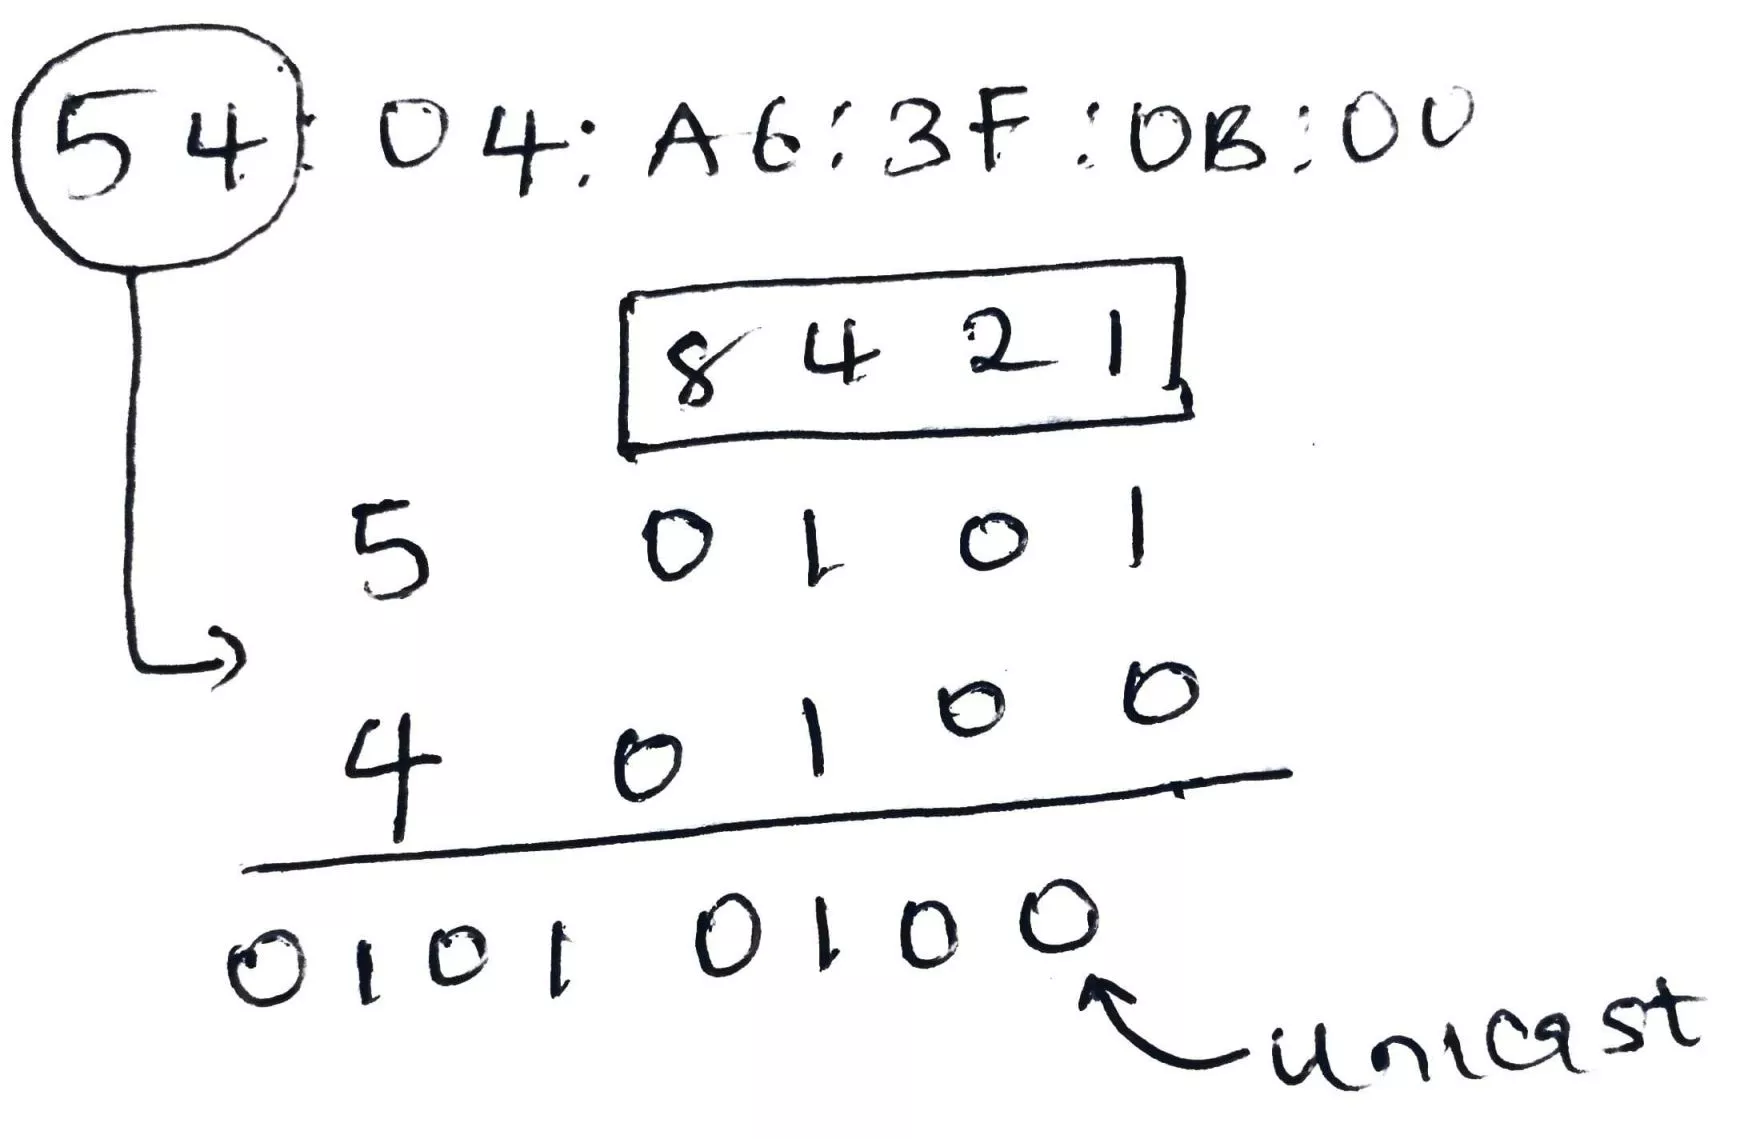 54:04:A6:3F:0B:00
8 4 2 1
5 0 1 0 1
4 0 1 0 0
0101 0100
unicast